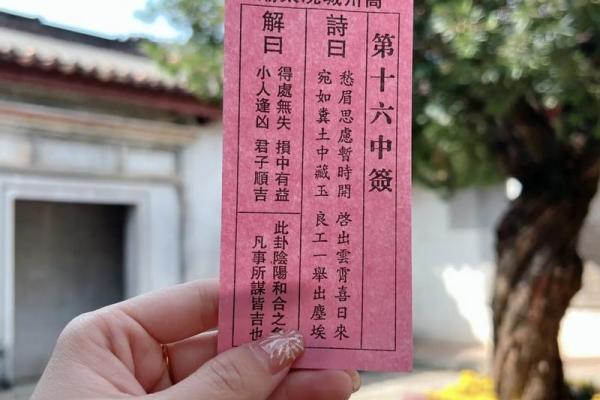 州城
第十六中簽
詩曰
愁眉思慮暫時開 啓出雲霄喜日來
宛如糞土中藏玉 良工一舉出塵埃
解曰
得處無失 損中有益
小人逢凶 君子順吉
此卦陰陽和合之
凡事所謀皆吉也